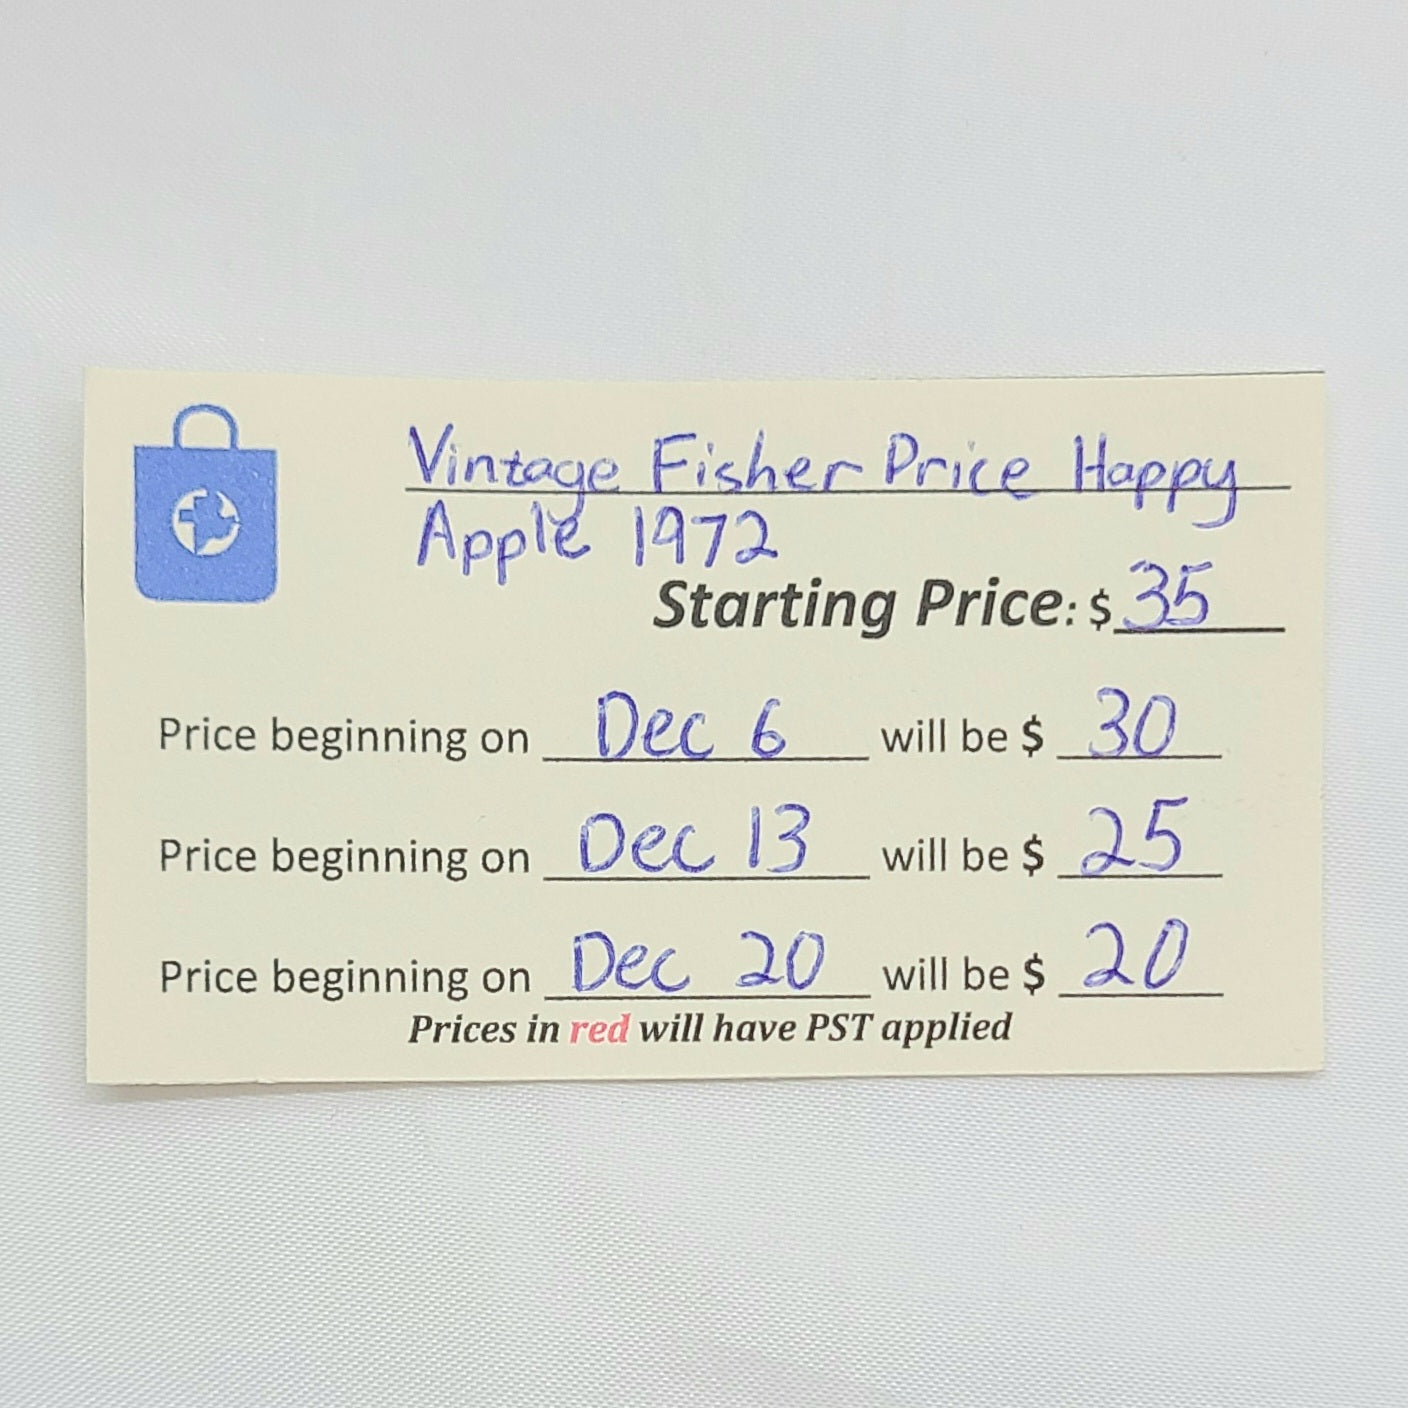 Vintage Fisher Price Happy
Apple 1972
Starting Price: $ 35
Price beginning on Dec 6 will be $ 30
Price beginning on Dec 13 will be $ 25
Price beginning on Dec 20 will be $ 20
Prices in red will have PST applied